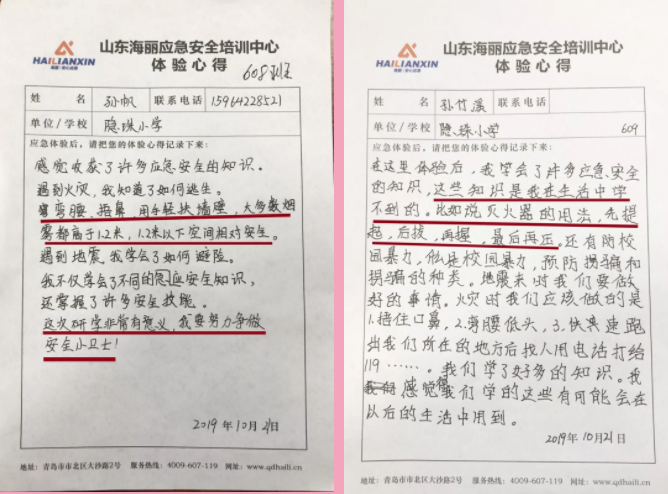 HAILIANXIN
山东海丽应急安全培训中心
体验心得
608班
姓 名 孙帆 联系电话 15964228521
单位/学校 隐珠小学
应急体验后，请把您的体验心得记录下来：
感觉收获了许多应急安全的知识。
遇到火灾，我知道了如何逃生。
弯腰、捂鼻，用手轻扶墙壁，大多数烟
雾都高于1.2米，1.2米以下空间相对安全。
遇到地震，我学会了如何避险。
我不仅学会了不同的应急安全知识，
还掌握了许多安全技能。
这次研学非常有意义，我要努力争做
安全小卫士！
2019年10月21日
地址：青岛市市北区大沙路2号 服务热线：4009-607-119 网址：www.qdhaili.cn
HAILIANXIN
山东海丽应急安全培训中心
体验心得
姓 名 孙竹溪 联系电话
单位/学校 隐珠小学 609
应急体验后，请把您的体验心得记录下来：
在这里体验后，我学会了许多应急、安全
的知识，这些知识是我在生活中学
不到的。比如说灭火器的用法，先提
起，后拔，再握，最后再压。还有防校
园暴力，什么是校园暴力，预防拐骗和
拐骗的种类。地震来时我们要做
好的事情。火灾时我们应该做的是
1.捂住口鼻，2.弯腰低头，3.快速跑
出我们所在的地方后找人用电话打给
119……。我们学了好多的知识。我
感觉我们学的这些有可能会在
以后的生活中用到。
2019年10月21日
地址：青岛市市北区大沙路2号 服务热线：4009-607-119 网址：www.qdhaili.cn